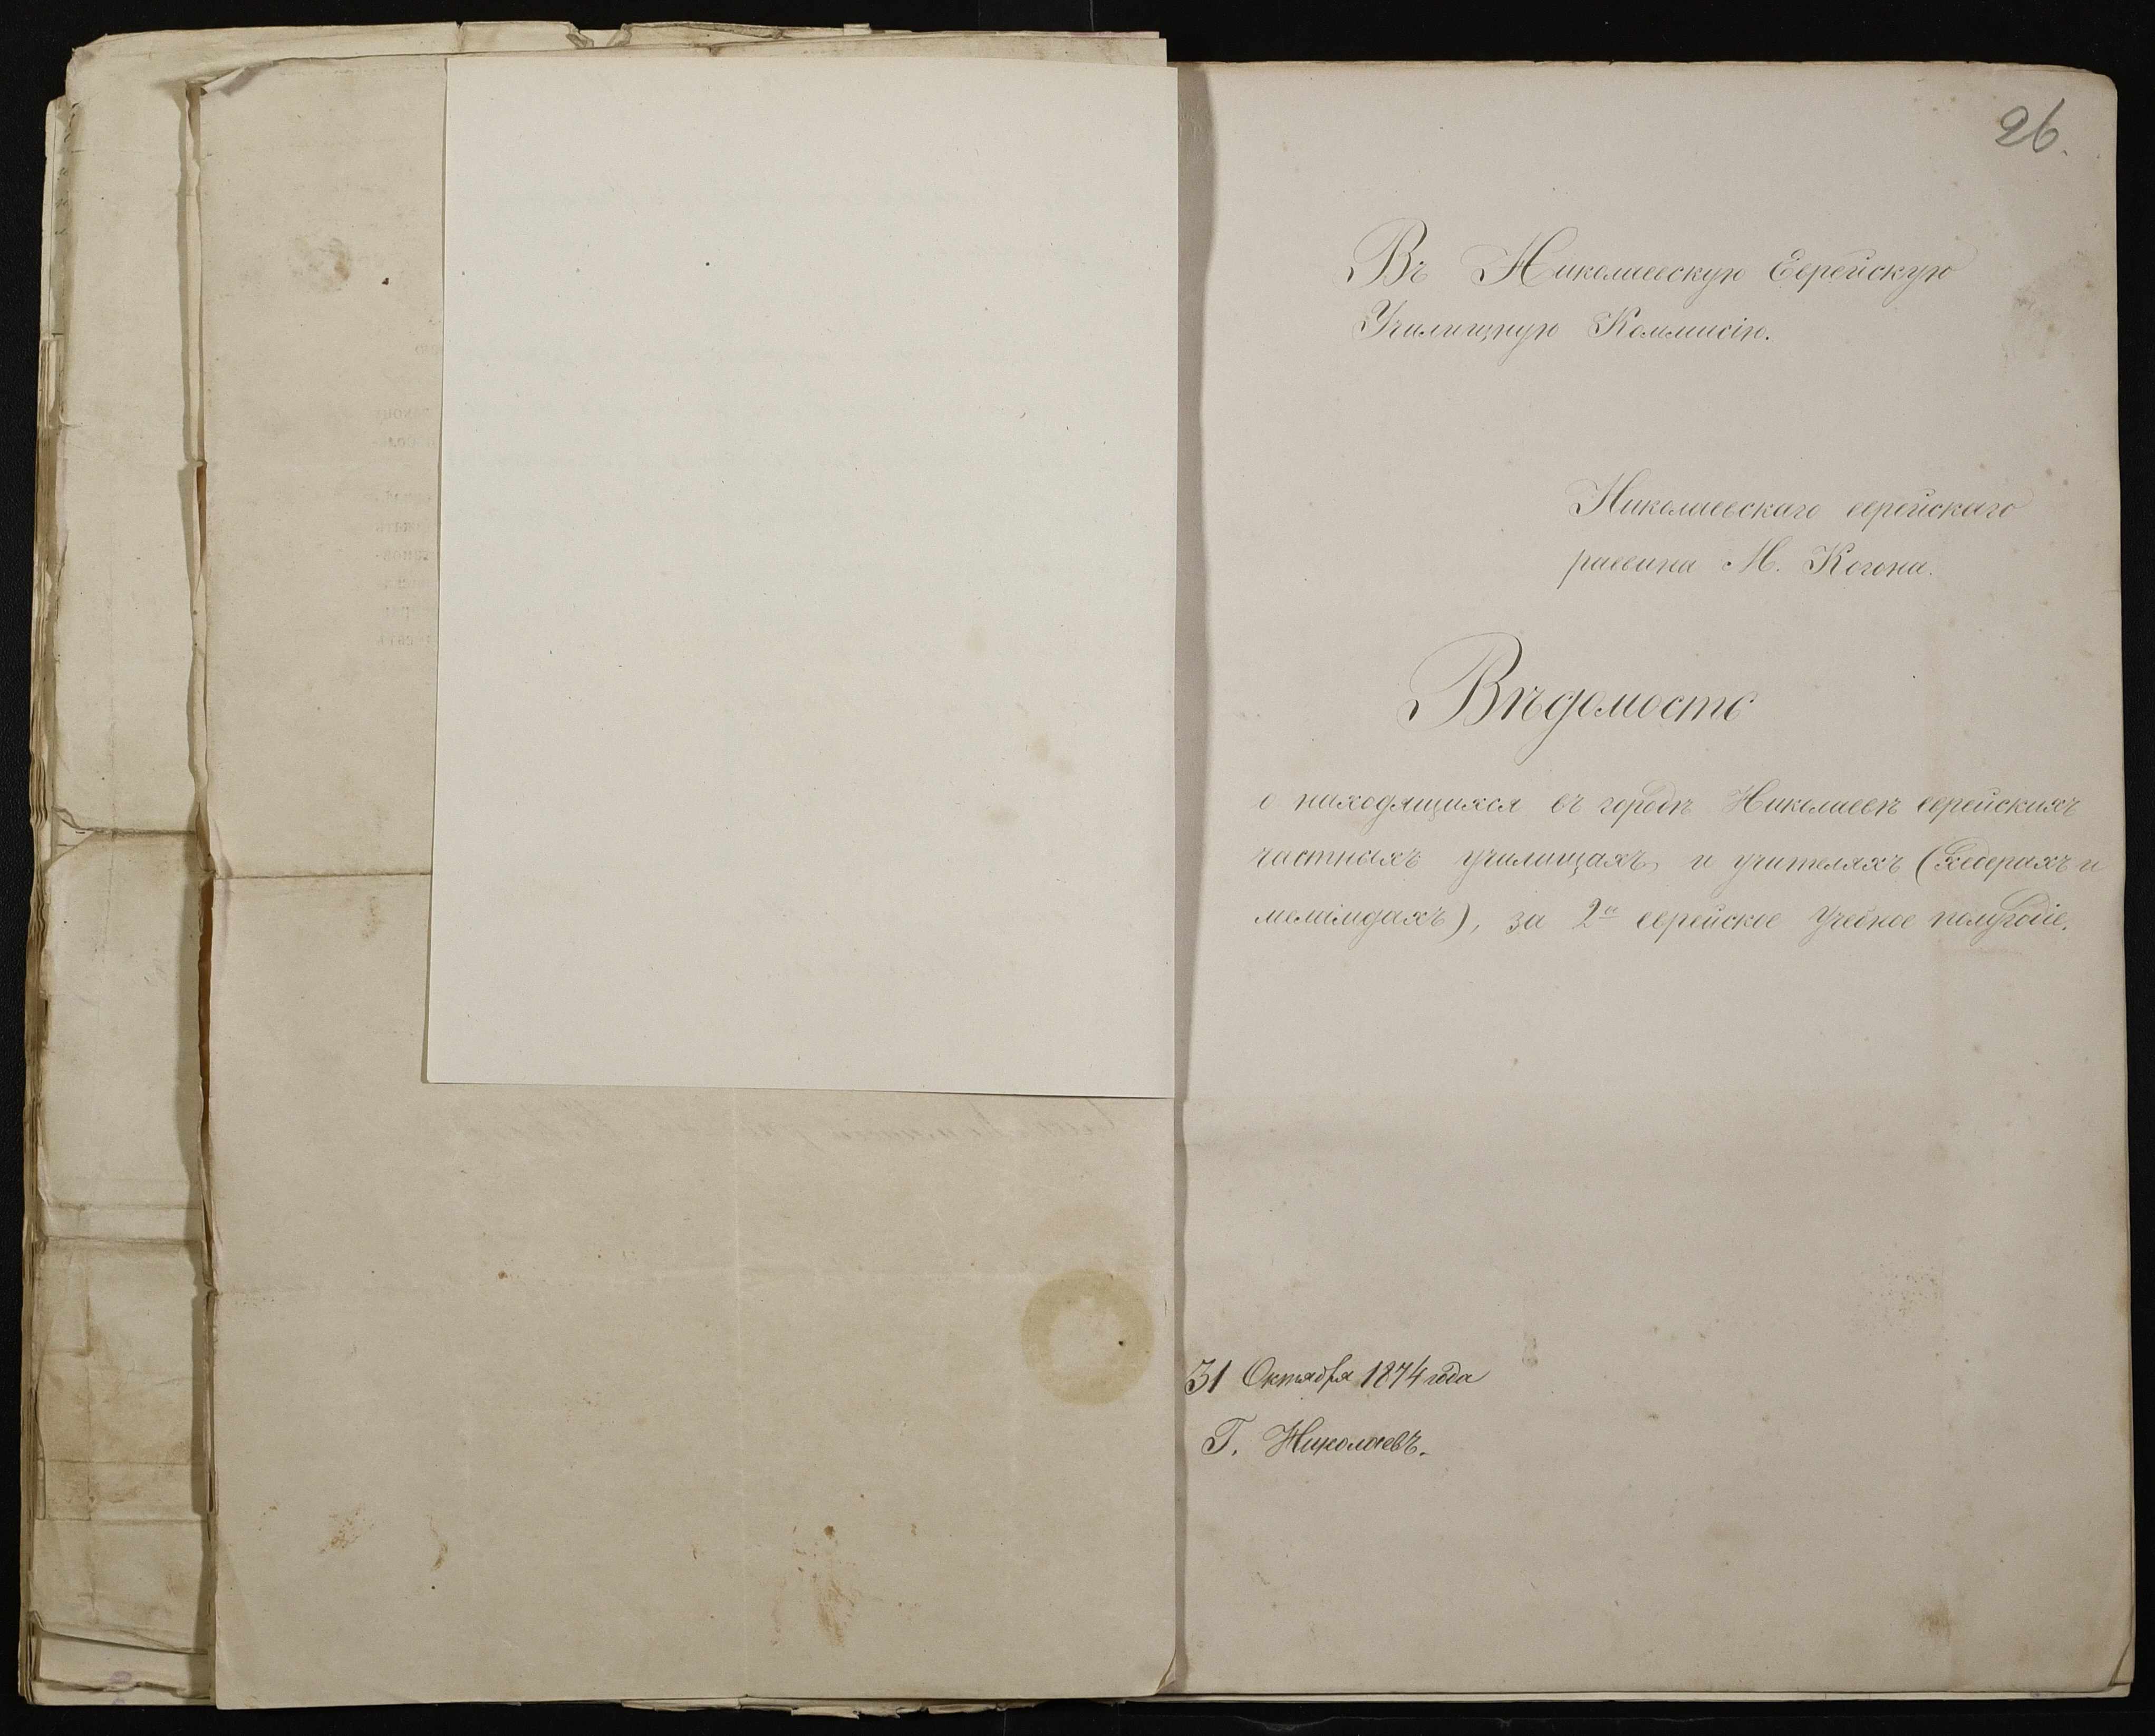 26.
Въ Николаевскую Еврейскую
Училищную Коммисію.
Николаевскаго еврейскаго
раввина М. Когона.
Вѣдомость
о находящихся въ городѣ Николаевѣ еврейскихъ
частныхъ училищахъ и учителяхъ (хедерахъ и
меламдахъ), за 2е еврейское учебное полугодіе.
31 Октября 1874 года
Г. Николаевъ.